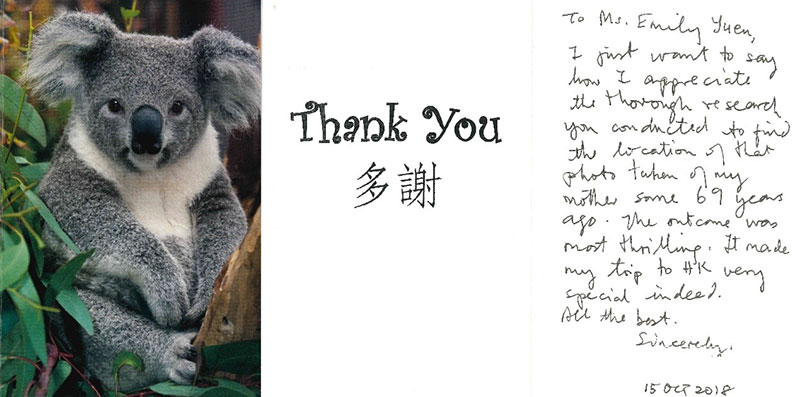 Thank You
多謝
To Ms. Emily Yuen,
I just want to say
how I appreciate
the thorough research
you conducted to find
the location of that
photo taken of my
mother some 69 years
ago. The outcome was
most thrilling. It made
my trip to HK very
special indeed.
All the best.
Sincerely,
15 Oct 2018